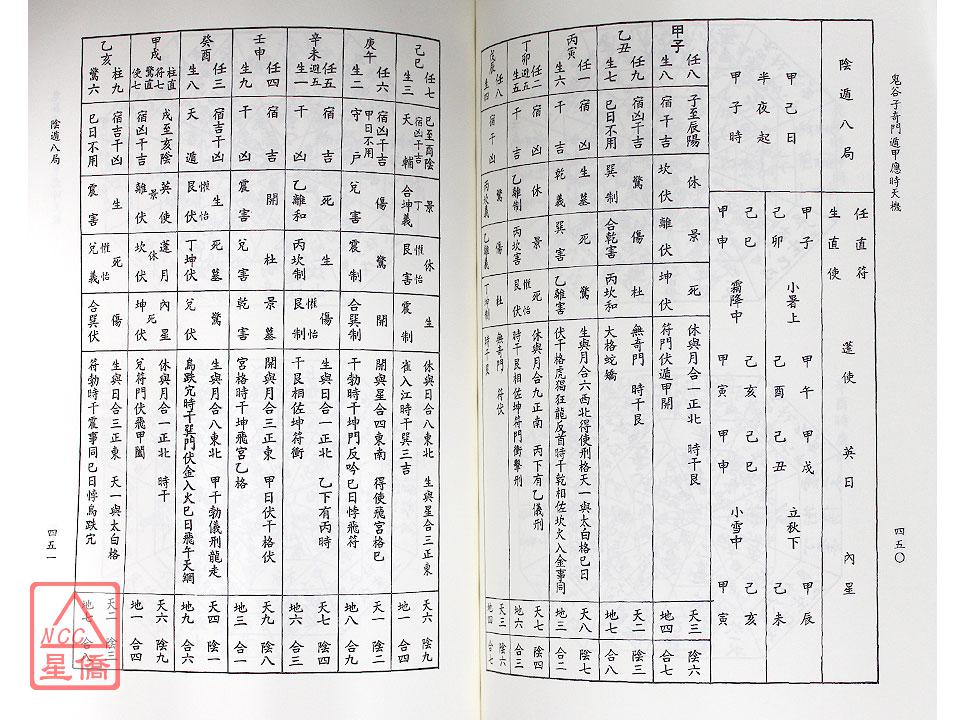 鬼谷子奇門遁甲應時天機
四五〇
陰遁八局
任直符 蓬使 英日 內星
生直使
甲己日
半夜起
甲子時
甲子 小暑上 甲午 甲戌 立秋下 甲辰
己卯 己酉 己丑 己未
己巳 己亥 己巳 己亥
甲申 霜降中 甲寅 甲申 小雪中 甲寅
甲子
任八 子至辰陽 休 景 死 休與月合一正北 時干艮 天三 陰六
生八 宿凶干吉 坎伏 離伏 坤伏 符門伏遁甲開 地三 合四
乙丑
任九 宿吉干凶 驚 傷 杜 無奇門 時干艮 天二 陰三
生七 巳日不用 巽制 合乾害 丙坎和 大格蛇矯 地二 合八
丙寅
任一 宿吉 生墓 死 驚 生與月合六西北得使刑格天一與太白格巳日 天八 陰四
生六 干凶 乾義 巽害 乙離害 伏干格虎猖狂龍反首時干乾相佐坎火入金事同 地三 合二
丁卯
任二 宿凶 休 景 死 休與月合九正南 丙下有乙儀刑 天七 陰四
遊五 生五 干吉 乙離制 丙坎害 艮伏 惟怡 時干艮相佐坤符門衝擊刑 地三 合三
戊辰
任八 宿 驚 傷 杜 無奇門 符伏 天三 陰六
生四 干凶 丙坎義 乙離義 丁坤制 時干艮 地四 合七
己巳
任七 巳至酉陰 景 休 生 休與日合八東北 生與星合三正東 天六 陰九
生三 宿凶干吉 天輔 合坤義 丁 艮害 惟怡 震制 雀入江時干巽三吉 地一 合四
庚午
任六 宿凶干吉 甲日不用 傷 驚 開 開與星合四東南 得使飛宮格巳 天一 陰二
生二 守戶 兌害 震制 合巽制 干勃時干坤門反吟巳日悖飛符 地八 合九
辛未
任五 遊五 宿吉 杜 生 惟怡 生與日合一正北 乙下有丙時 天九 陰四
生一 干凶 乙離和 丙坎制 艮制 干艮相佐坤符衝 地三 合六
壬申
任四 宿吉 開 杜 景墓 開與月合三正東 甲日伏干格伏 天六 陰八
生九 干凶 震害 兌害 乾害 宮格時干坤飛宮乙格 地一 合一
癸酉
任三 宿吉干凶 生 死墓 驚 生與月合八東北 甲干勃儀刑龍走 天四 陰一
生八 天遁 艮伏 惟怡 丁坤伏 兌伏 鳥跌穴時干巽門伏金入火巳日飛午天網 地九 合六
甲戌
柱直符七 戌至亥陰 英使 蓬月 內星 休與月合一正北 時干 天六 陰九
驚直使七 宿凶干吉 景離伏 休坎伏 死坤伏 兌符門伏飛甲闔 地一 合四
乙亥
柱九 宿吉干凶 生 死 傷 生與日合三正東 天一與太白格 天二 陰三
驚六 巳日不用 震害 兌義 惟怡 合巽伏 符勃時干震事同巳日悖鳥跌穴 地七 合八
陰遁八局
四五一
NCC
星僑